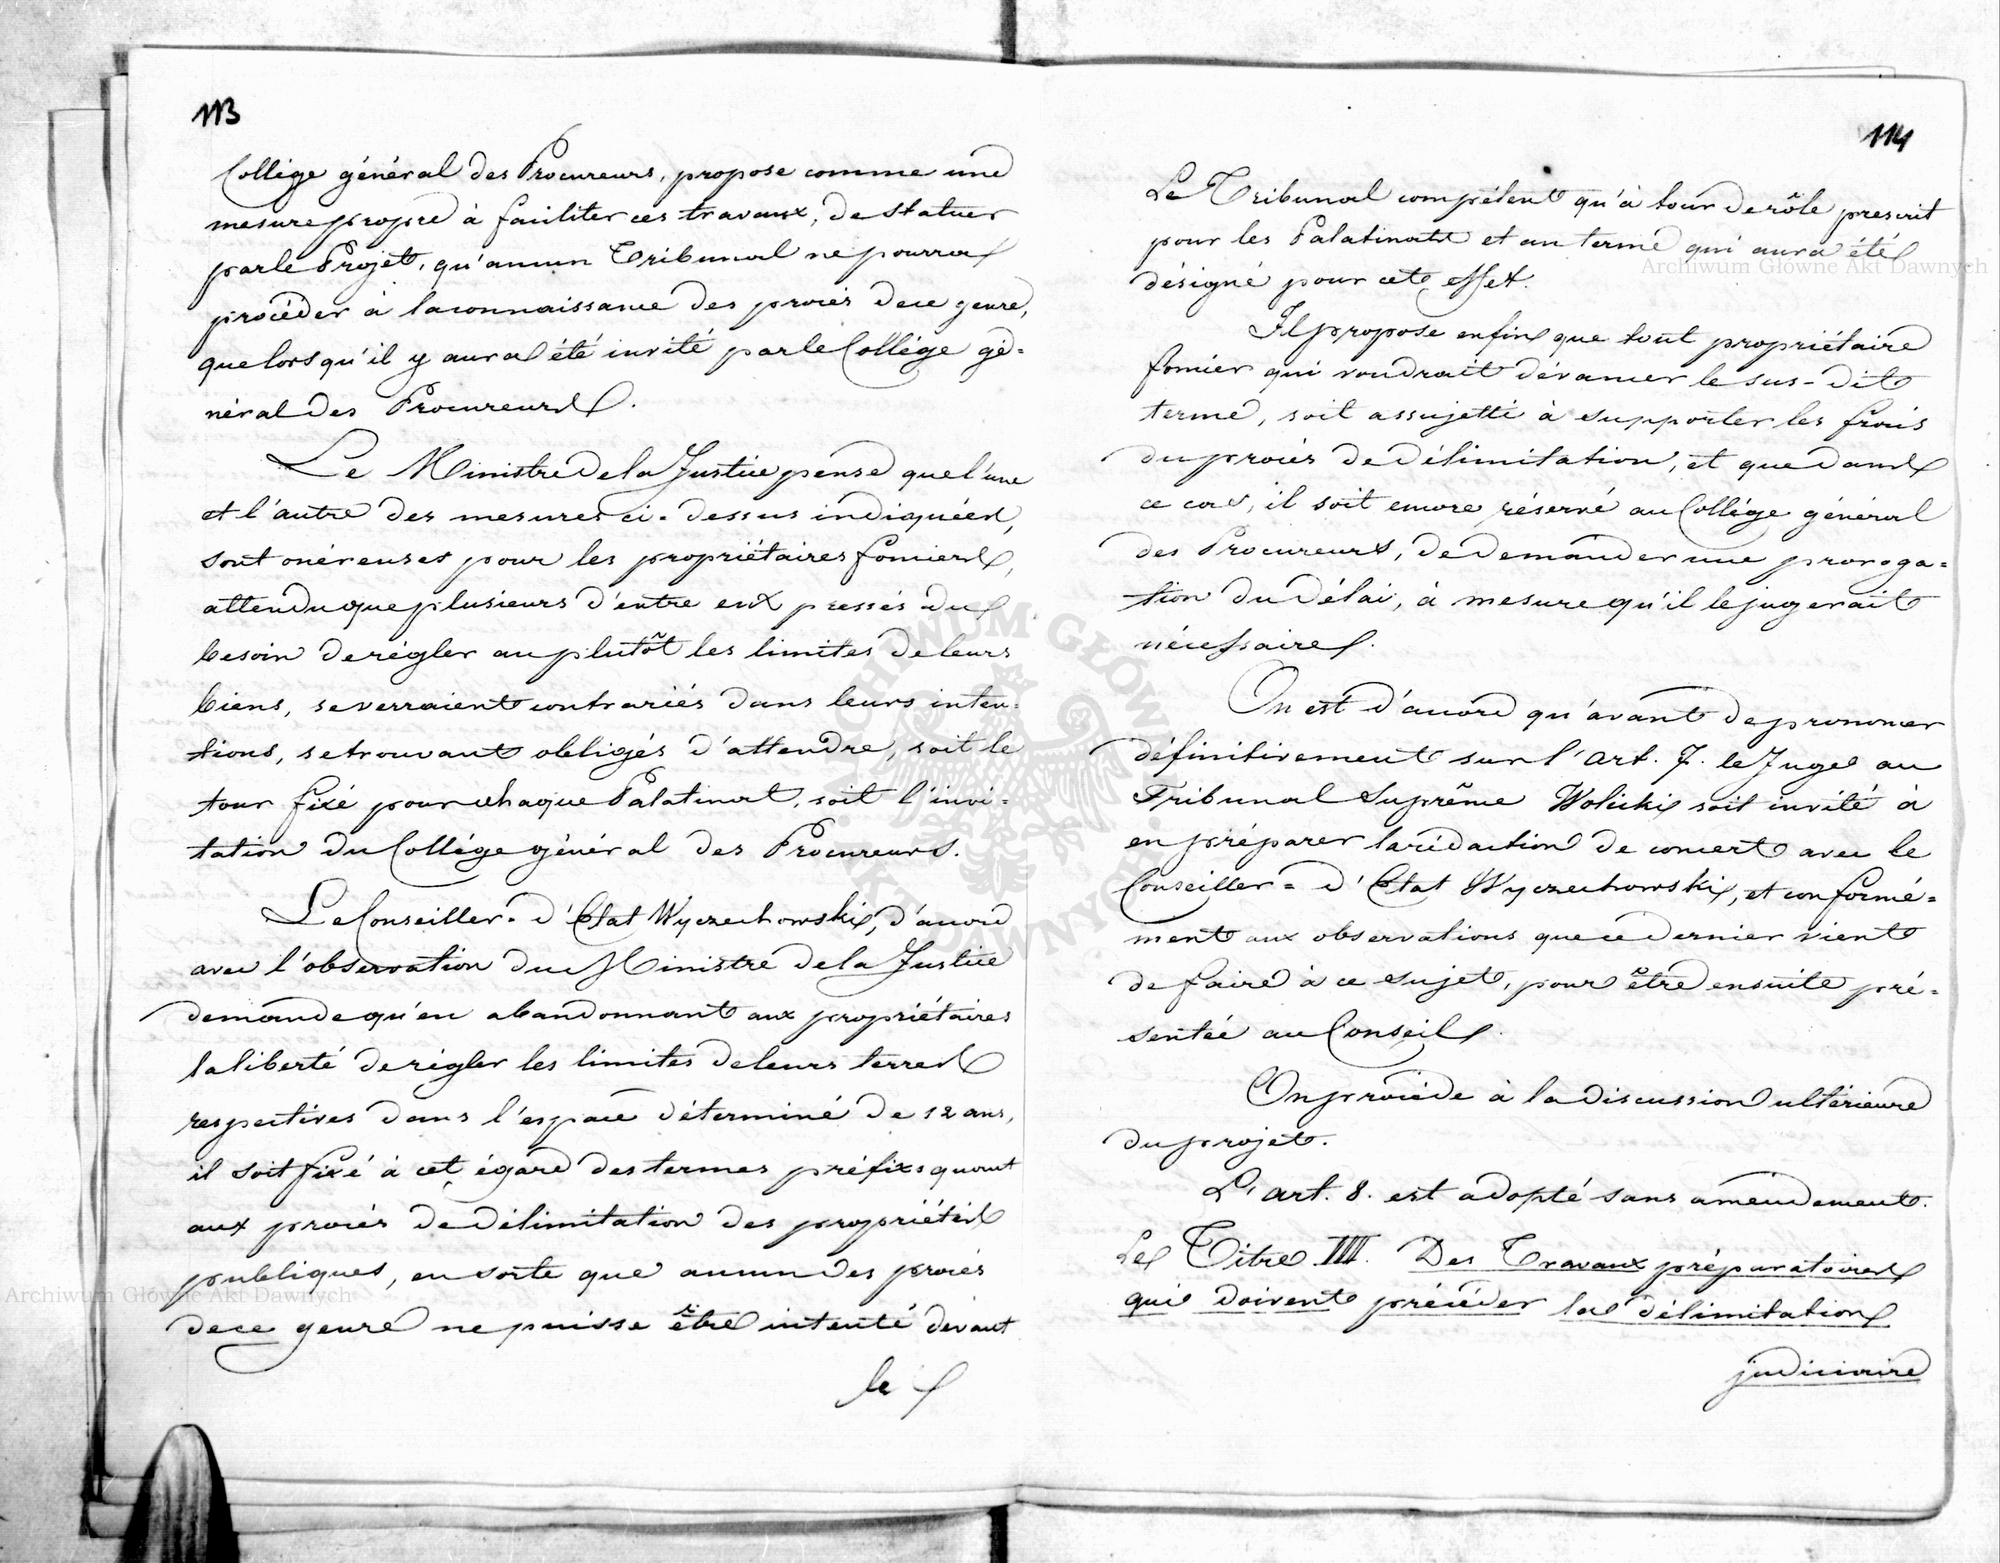 113
Collége général des Procureurs, propose comme une
mesure propre à faciliter ces travaux, de statuer
par le Projet, qu'aucun Tribunal ne pourra
procéder à la connaissance des procès de ce genre,
que lorsqu'il y aura été invité par le Collége gé-
néral des Procureurs.
Le Ministre de la Justice pense que l'une
et l'autre des mesures ci-dessus indiquées,
sont onéreuses pour les propriétaires fonciers,
attendu que plusieurs d'entre eux pressés du
besoin de régler au plutôt les limites de leurs
biens, se verraient contrariés dans leurs inten-
tions, se trouvant obligés d'attendre, soit le
tour fixé pour chaque Palatinat, soit l'invi-
tation du Collége général des Procureurs.
Le Conseiller-d'Etat Wyczechowski, d'accord
avec l'observation du Ministre de la Justice
demande qu'en abandonnant aux propriétaires
la liberté de régler les limites de leurs terres
respectives dans l'espace déterminé de 12 ans,
il soit fixé à cet égard des termes préfixs quant
aux procès de délimitation des propriétés
publiques, en sorte que aucun des procès
de ce genre ne puisse être intenté devant
le
114
Le Tribunal compétent qu'à tour de rôle prescrit
pour les Palatinats et au terme qui aura été
désigné pour cet effet.
Il propose enfin que tout propriétaire
foncier qui voudrait dévancer le sus-dit
terme, soit assujetti à supporter les frais
du procès de délimitation, et que dans
ce cas, il soit encore réservé au Collége général
des Procureurs, de demander une proroga-
tion du délai, à mesure qu'il le jugerait
nécessaire.
On est d'accord qu'avant de prononcer
définitivement sur l'art. 7. le Juge au
Tribunal Suprême Wolicki soit invité à
en préparer la rédaction de concert avec le
Conseiller-d'Etat Wyczechowski, et conformé-
ment aux observations que ce dernier vient
de faire à ce sujet, pour être ensuite pré-
sentée au Conseil.
On procède à la discussion ultérieure
du projet.
L'art. 8. est adopté sans amendement.
Le Titre III. Des Travaux préparatoires
qui doivent précéder la délimitation
judiciaire
Archiwum Główne Akt Dawnych
Archiwum Główne Akt Dawnych
ARCHIWUM GŁÓWNE AKT DAWNYCH